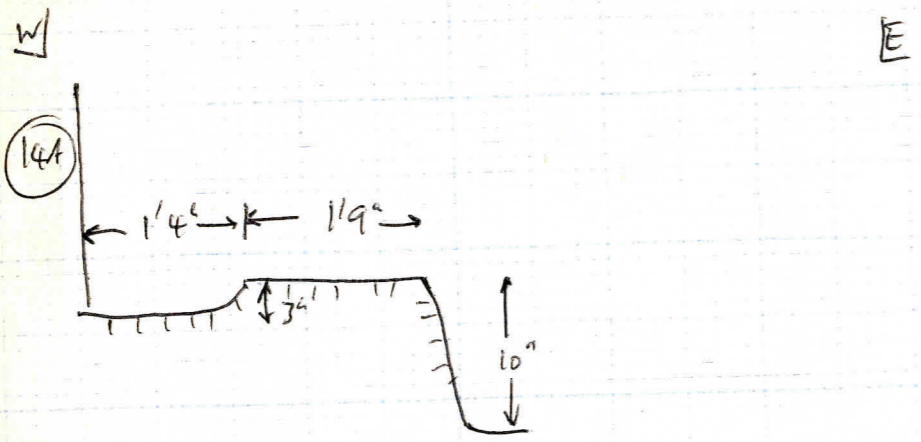 W
E
14A
1'4"
1'9"
3"
10"